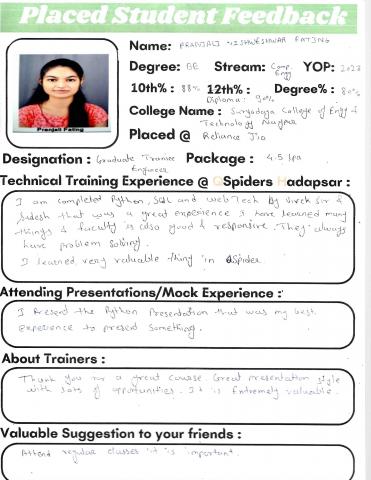 Placed Student Feedback
Name: PRANJALI VISHWESHWAR FATING
Degree: BE Stream: Comp. Engg YOP: 2023
10th% : 88% 12th% : Diploma: 90% Degree% : 80%
College Name : Suryodaya College of Engg &
Technology Nagpur
Placed @ Reliance Jio
Pranjali Fating
Designation : Graduate Trainee Engineer Package : 4.5 lpa
Technical Training Experience @ QSpiders Hadapsar :
I am completed Python, SQL and web Tech by Vivek sir &
that was a great experience I have learned many
things & faculty is also good & responsive. They always
have problem solving.
I learned very valuable thing in QSpider
Attending Presentations/Mock Experience :
I Present the Python Presentation that was my best
experience to present something.
About Trainers :
Thank you for a great course. Great presentation style
with lots of opportunities. It is Extremely valuable.
Valuable Suggestion to your friends :
Attend regular classes it is important.